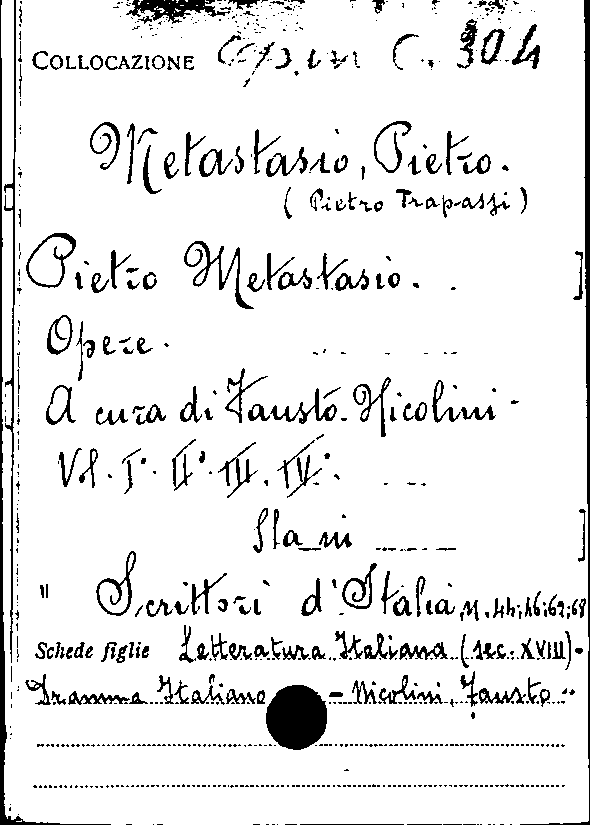 COLLOCAZIONE Op. in C. 304
Metastasio, Pietro.
( Pietro Trapassi )
Pietro Metastasio.
Opere.
A cura di Fausto Nicolini -
Vol. I°. II°. III. IV°.
" Scrittori d'Italia, n. 44; 46; 62; 68
Schede figlie Letteratura Italiana (sec. XVIII) -
Dramma Italiano - Nicolini, Fausto -